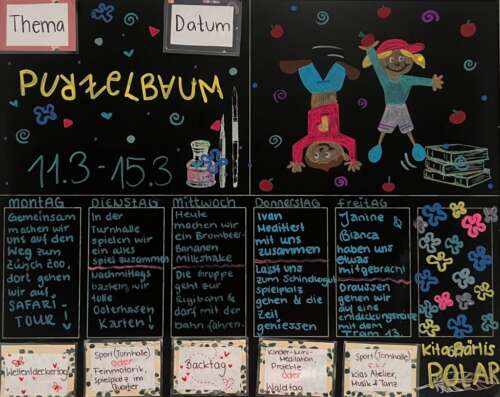 Thema
Datum
PURZELBAUM
11.3 - 15.3
MONTAG
Gemeinsam
machen wir
uns auf den
Weg zum
Zürich Zoo,
dort gehen
wir auf
SAFARI-
TOUR!
DIENSTAG
In der
Turnhalle
spielen wir
ein altes
Spiel zusammen
Nachmittags
basteln wir
tolle
Osterhasen
Karten!
Mittwoch
Heute
machen wir
ein Brombeer-
Bananen
Milkshake
Die Gruppe
geht zur
Rigiborn &
darf mit der
bahn fahren.
Donnerstag
Ivan
Meditiert
mit uns
zusammen
Lasst uns
zum Schindlergut
spielpatz
gehen & die
Zeit
geniessen
freitag
Janine &
Bianca
haben uns
etwas
mitgebracht
Draussen
gehen wir
auf eine
entdeckungsreise
mit dem
Tram 13.
Weltentdeckertag
Sport (Turnhalle)
oder
Feinmotorik,
Spielplatz im
Quartier
Backtag
Kinder-
Meditation
Projekte
oder
Waldtag
Sport (Turnhalle)
Kias Atelier,
Musik & Tanz
Kita
POLAR